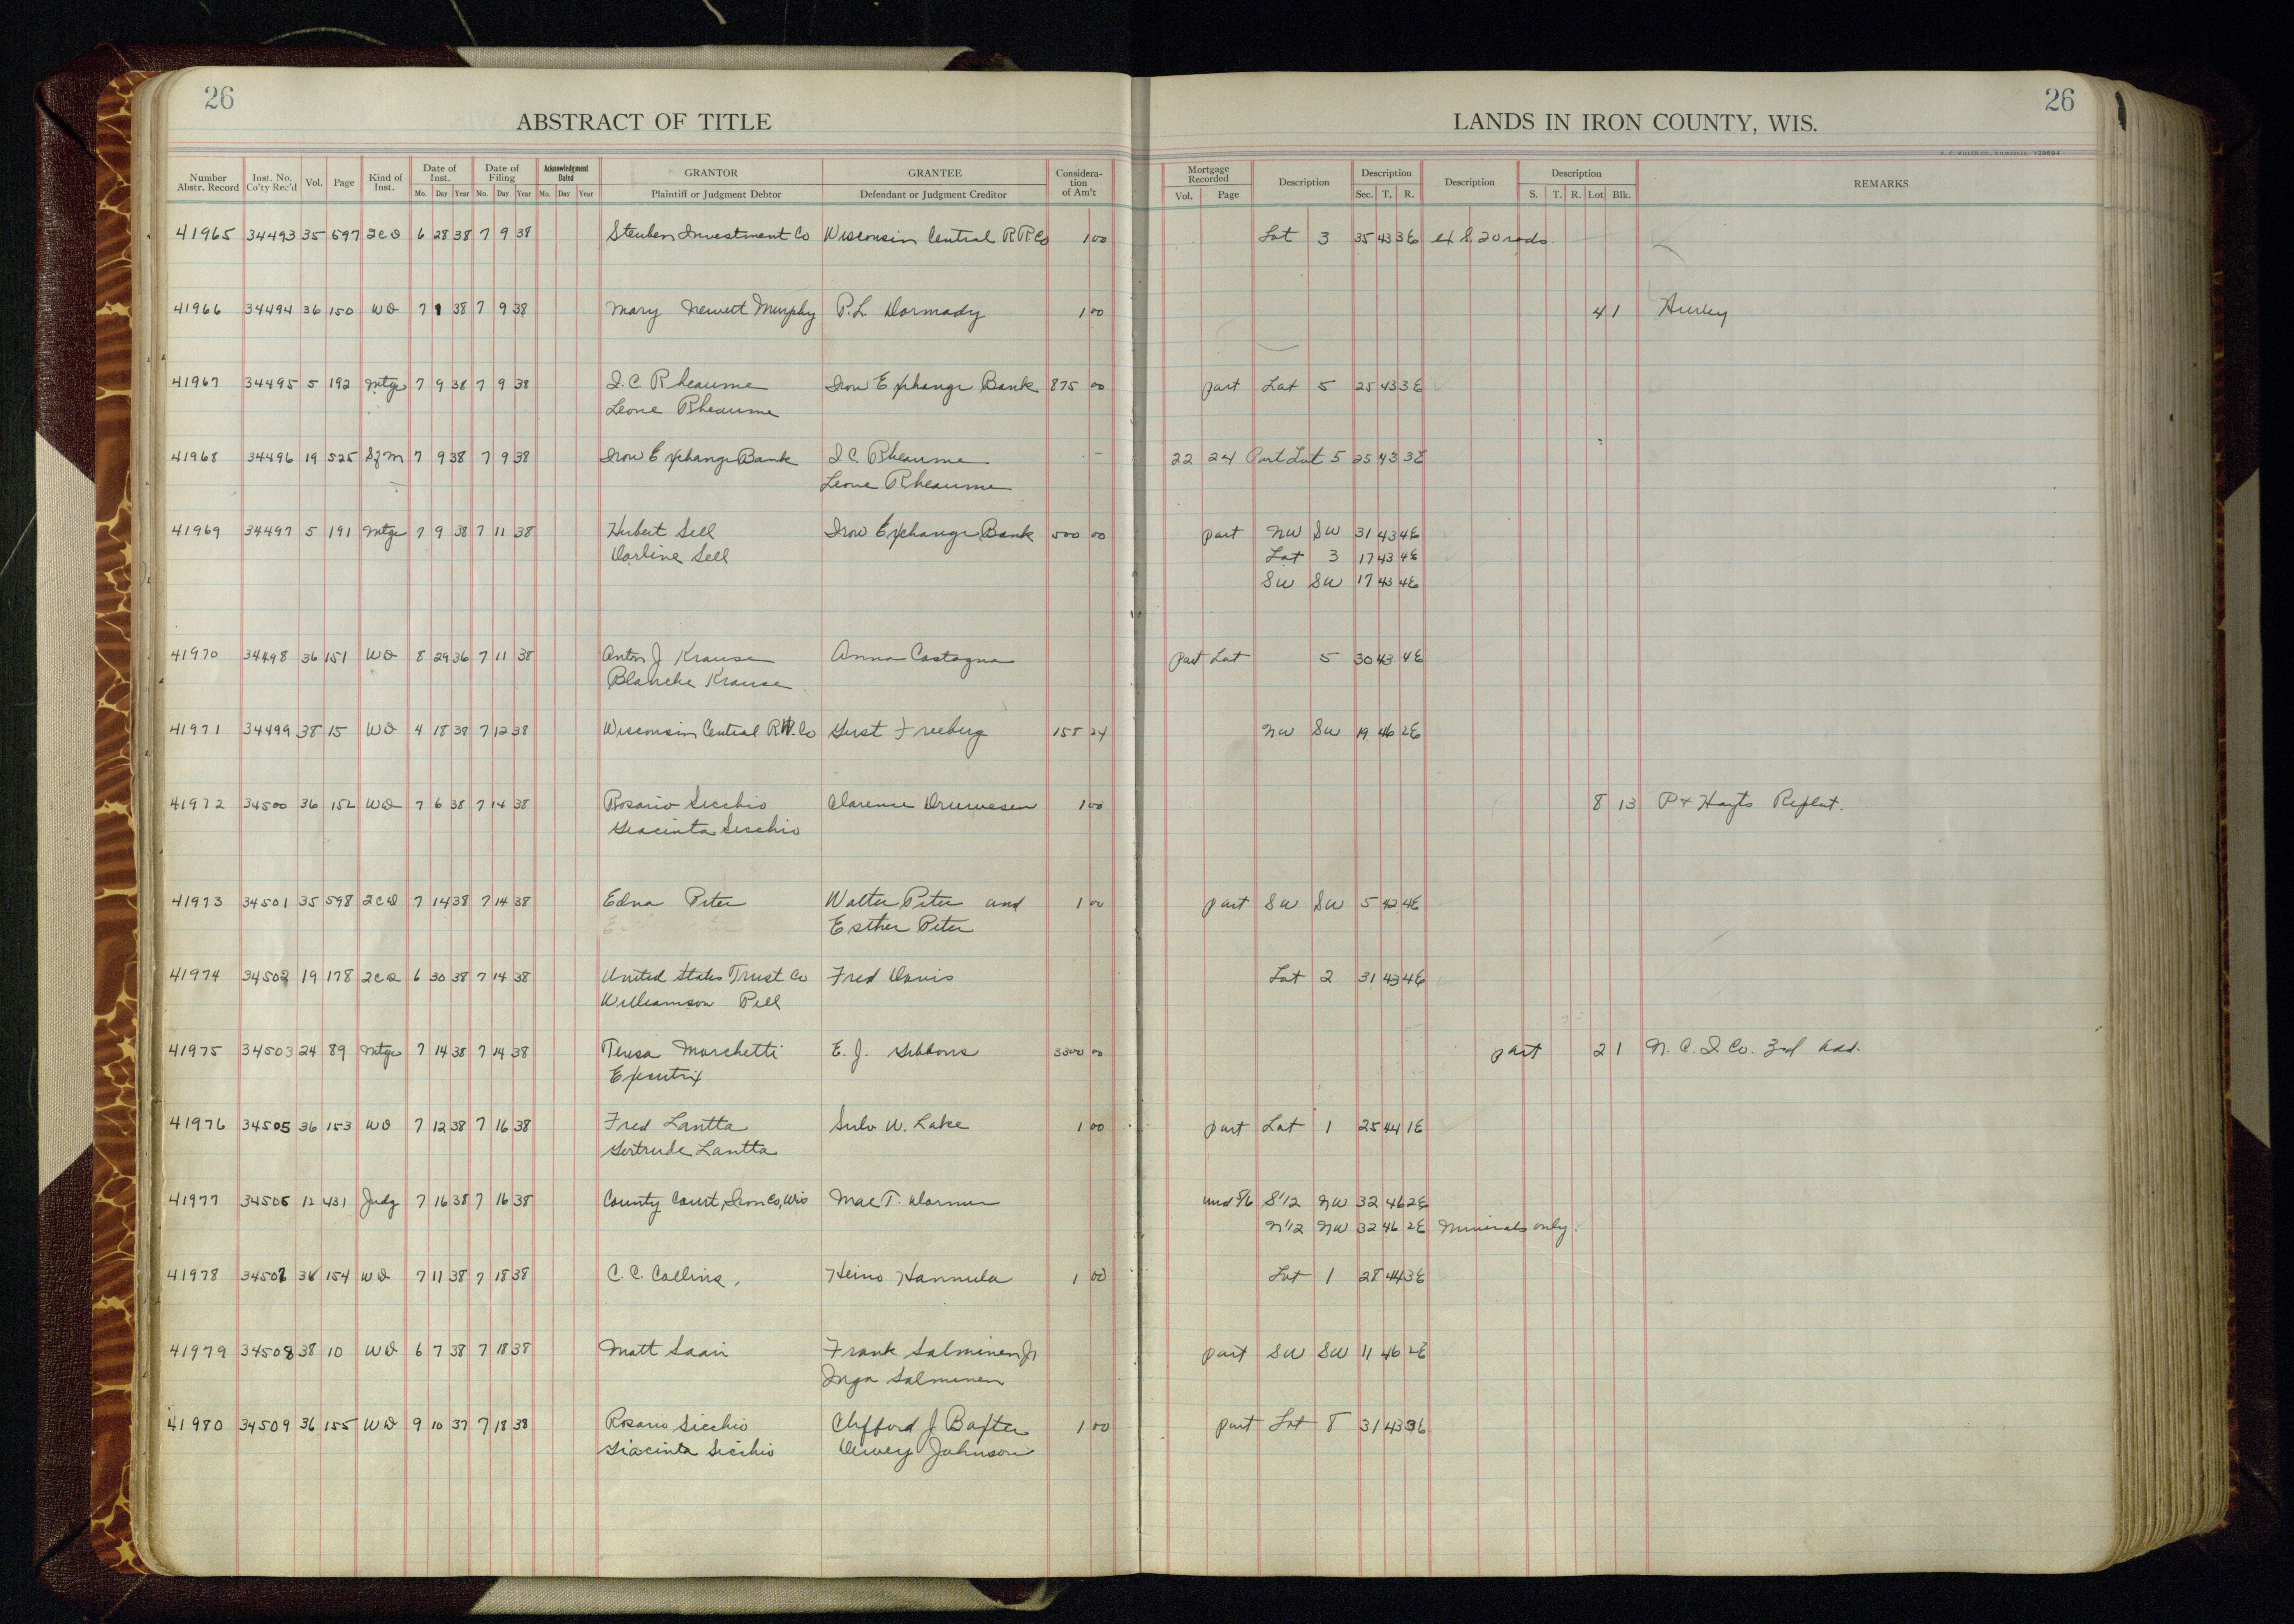 26
ABSTRACT OF TITLE
LANDS IN IRON COUNTY, WIS.
26
H. C. MILLER CO., MILWAUKEE
Number Abstr. Record Inst. No. Co'ty Rec'd Vol. Page Kind of Inst. Date of Inst. Mo. Day Year Date of Filing Mo. Day Year Acknowledgment Dated Mo. Day Year GRANTOR Plaintiff or Judgment Debtor GRANTEE Defendant or Judgment Creditor Consideration of Am't Mortgage Recorded Vol. Page Description Description Sec. T. R. Description Description S. T. R. Lot Blk. REMARKS
41965 34493 35 597 2CD 6 28 38 7 9 38 Steuben Investment Co Wisconsin Central RR Co 1 00 Lot 3 35 43 3E ex S. 20 rods
41966 34494 36 150 WD 7 1 38 7 9 38 Mary Hewett Murphy P.L. Dormady 1 00 4 1 Hurley
41967 34495 5 192 Mtge 7 9 38 7 9 38 I.C. Rheaume Iron Exchange Bank 875 00 part Lot 5 25 43 3E
Leone Rheaume
41968 34496 19 525 SfM 7 9 38 7 9 38 Iron Exchange Bank I C. Rheaume — 22 24 Part Lot 5 25 43 3E
Leone Rheaume
41969 34497 5 191 Mtge 7 9 38 7 11 38 Hubert Sell Iron Exchange Bank 500 00 part NW SW 31 43 4E
Darline Sell Lot 3 17 43 4E
SW SW 17 43 4E
41970 34498 36 151 WD 8 29 36 7 11 38 Anton J Krause Anna Castagna part Lot 5 30 43 4E
Blanche Krause
41971 34499 38 15 WD 4 18 38 7 12 38 Wisconsin Central RW. Co Gust Freeberg 158 24 NW SW 19 46 2E
41972 34500 36 152 WD 7 6 38 7 14 38 Rosario Sicchio Clarence 1 00 8 13 P + Hayts Replat.
Giacinta Sicchio
41973 34501 35 598 2CD 7 14 38 7 14 38 Edna Peter Walter Peter and 1 00 part SW SW 5 42 4E
Esther Peter
41974 34502 19 178 2CD 6 30 38 7 14 38 United States Trust Co Fred Davis Lot 2 31 43 4E
Williamson Pell
41975 34503 24 89 Mtge 7 14 38 7 14 38 Teresa Marchetti E. J. Gibbons 3300 00 part 2 1 N. C. I. Co. 3rd Add.
Executrix
41976 34505 36 153 WD 7 12 38 7 16 38 Fred Lantta Sulo W. Lake 1 00 part Lot 1 25 44 1E
Gertrude Lantta
41977 34506 12 431 Judg 7 16 38 7 16 38 County Court, Iron Co, Wis Mae T. Dormer und 5/6 S 1/2 NW 32 46 2E
N 1/2 NW 32 46 2E Minerals only.
41978 34507 36 154 WD 7 11 38 7 18 38 C. C. Collins, Heino Hannula 1 00 Lot 1 28 44 3E
41979 34508 38 10 WD 6 7 38 7 18 38 Matt Saari Frank Salminen Jr part SW SW 11 46 2E
Inga Salminen
41980 34509 36 155 WD 9 10 37 7 18 38 Rosario Sicchio Clifford J Baxter 1 00 part Lot 8 31 43 3E
Giacinta Sicchio Dewey Johnson